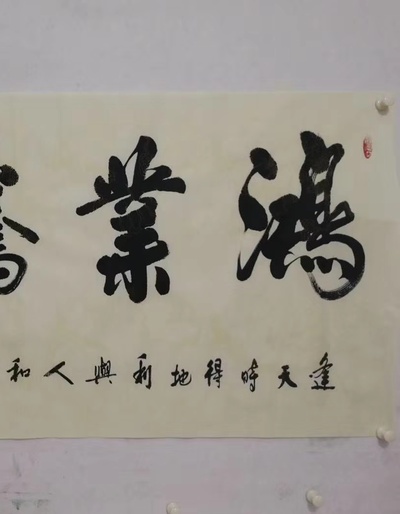 鴻業
逢天時得地利與人和